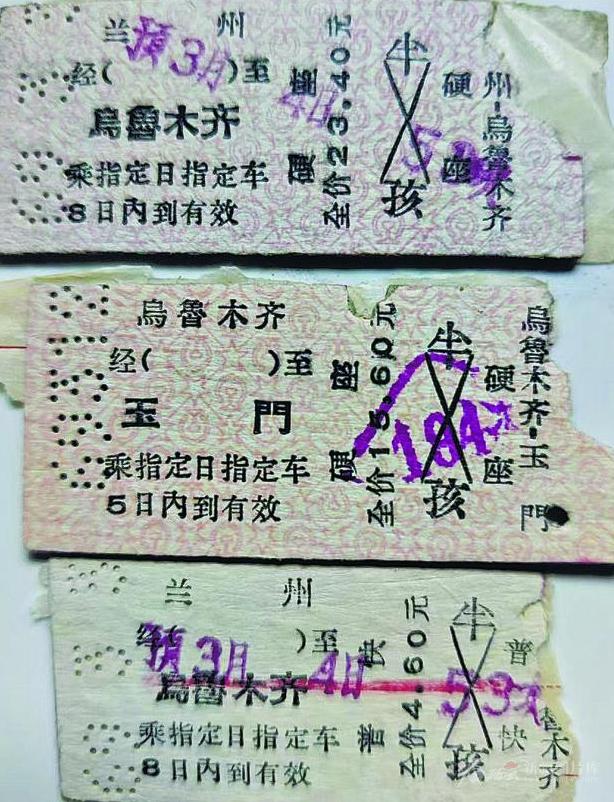 兰 州
预3月
经( )至
4日
烏魯木齐
乘指定日指定车
8日内到有效
硬座
全价23.40元
半
孩
硬座
州-烏魯木齐
烏魯木齐
经( )至
玉 門
乘指定日指定车
5日内到有效
硬座
全价15.60元
半
孩
184次
硬座
烏魯木齐-玉門
兰 州
经( )至
预3月4日
烏魯木齐
乘指定日指定车
8日内到有效
普快
全价4.60元
半
孩
53次
普快
魯木齐